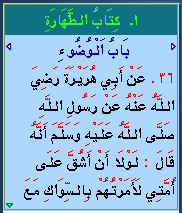 ١. كِتَابُ الطَّهَارَةِ
بَابُ الْوُضُوءِ
٣٦. عَنْ أَبِي هُرَيْرَةَ رَضِيَ
اللَّهُ عَنْهُ عَنْ رَسُولِ اللَّهِ
صَلَّى اللَّهُ عَلَيْهِ وَسَلَّمَ أَنَّهُ
قَالَ : لَوْلَا أَنْ أَشُقَّ عَلَى
أُمَّتِي لَأَمَرْتُهُمْ بِالسِّوَاكِ مَعَ